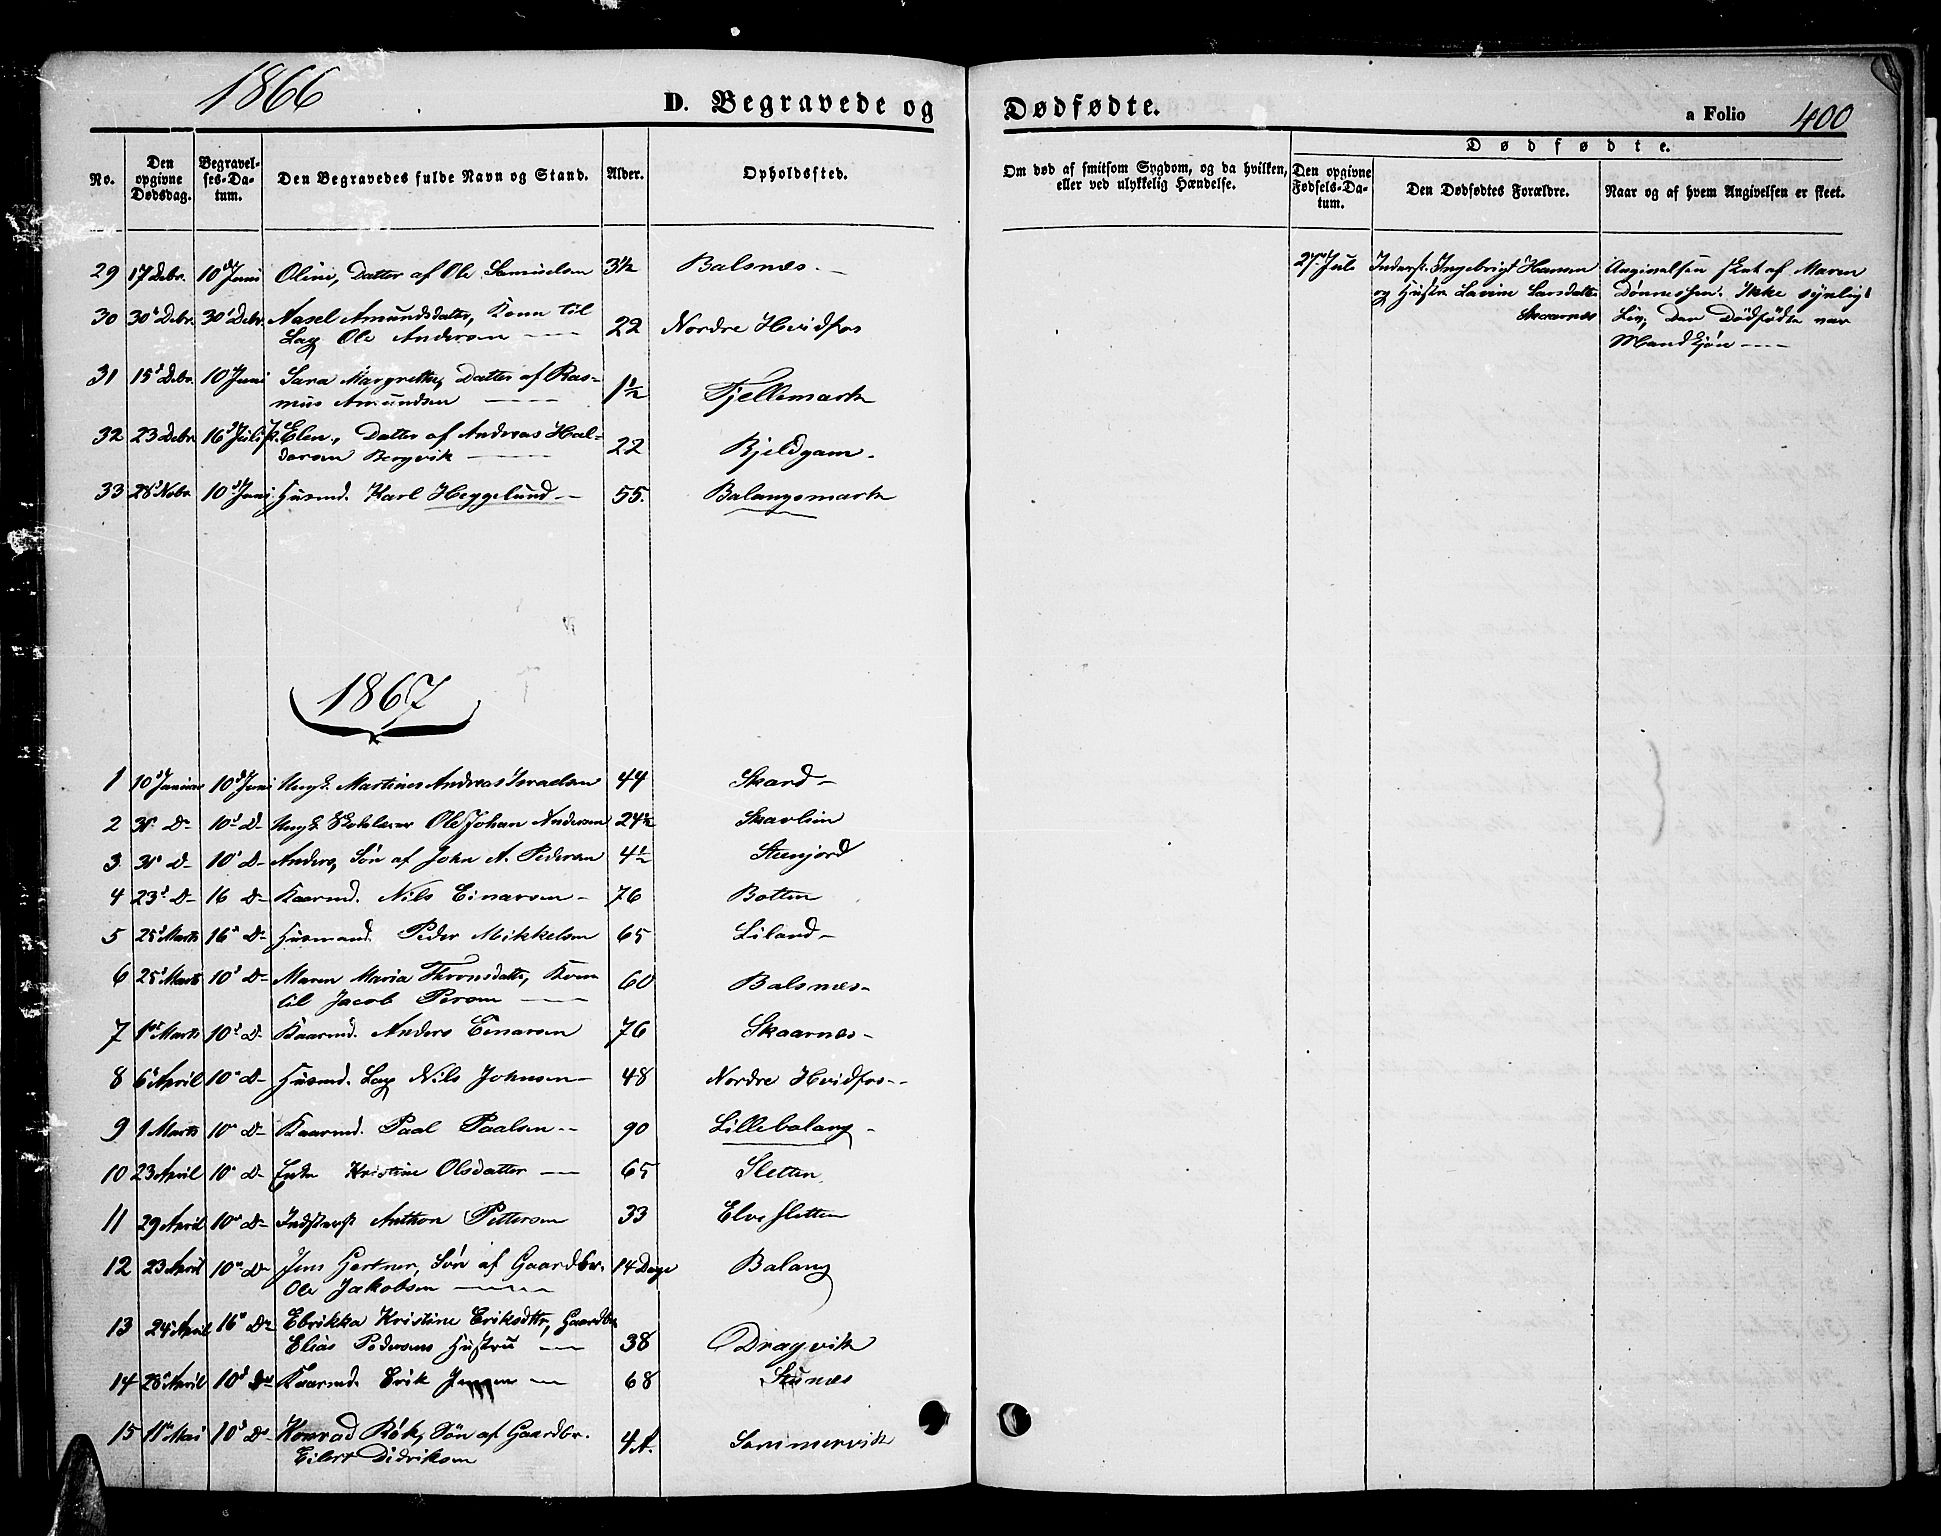 1866
D. Begravede og Dødfødte.
a Folio 400
No.
Den opgivne Dødsdag.
Begravelses-Datum.
Den Begravedes fulde Navn og Stand.
Alder.
Opholdssted.
Om død af smitsom Sygdom, og da hvilken, eller ved ulykkelig Hændelse.
Dødfødte.
Den opgivne Fødsels-Datum.
Den Dødfødtes Forældre.
Naar og af hvem Angivelsen er skeet.
29 17 Debr. 10 Juni Oline, Datter af Ole Samuelsen 3½ Balsnes.
30 30 Debr. 30 Debr. Aasel Amundsdatter, Kone til
Lap Ole Andersen 22 Nordre Hvidfos
31 15 Debr. 10 Juni Sara Margrethe, Datter af Ras-
mus Amundsen 1½ Fjellemark
32 23 Debr. 16 Juli P. Elen, Datter af Andreas Hal-
dorsen Bergvik 22 Bjeldgam
33 28 Nobr. 10 Juni Husmd. Karl Heggelund 55. Balangsmark
27 Juli Inderst. Ingebrigt Hansen
og Hustr. Lavine Larsdatter
Skaarnes
Angivelsen skeet af Maren
Dønnessen. Ikke synligt
Liv, Den Dødfødte var
Mandkjøn
1867
1 10 Januar 10 Juni Ungk. Martines Andreas Israelsen 44 Skard
2 D. 10 D. Ungk. Ole Johan Andersen 24½ Skavlien
3 D. 10 D. Anders, Søn af John A. Pedersen 4½ Stenjord
4 23 D. 16 D. Kaarmd. Nils Einarsen 76 Botten
5 25 Marts 16 D. Husmand. Peder Mikkelsen 65 Liland
6 25 Marts 10 D. Maren Maria Thronsdatter, Kone
til Jacob Persen 60 Balsnes
7 1 Marts 10 D. Kaarmd. Anders Einarsen 76 Skaarnes
8 6 April 10 D. Husmd. Lap Nils Johnsen 48 Nordre Hvidfos
9 1 Marts 10 D. Kaarmd. Paal Paalsen 90 Lillebalang
10 23 April 10 D. Enke Kristine Olsdatter 65 Sletten
11 29 April 10 D. Inderst Anthon Pettersen 33 Elvesletten
12 23 April 10 D. Jens Gertner, Søn af Gaardbr.
Ole Jakobsen 14 Dage Balang
13 24 April 16 D. Ebrikka Kristine Eriksdtr, Gaardbr
Elias Pedersens Hustru 38 Dragvik
14 28 April 10 D. Kaarmd. Erik Jensen 68
15 11 Mai 10 D. Konrad Røk, Søn af Gaardbr.
Eilert Didriksen 4 A. Sommervik